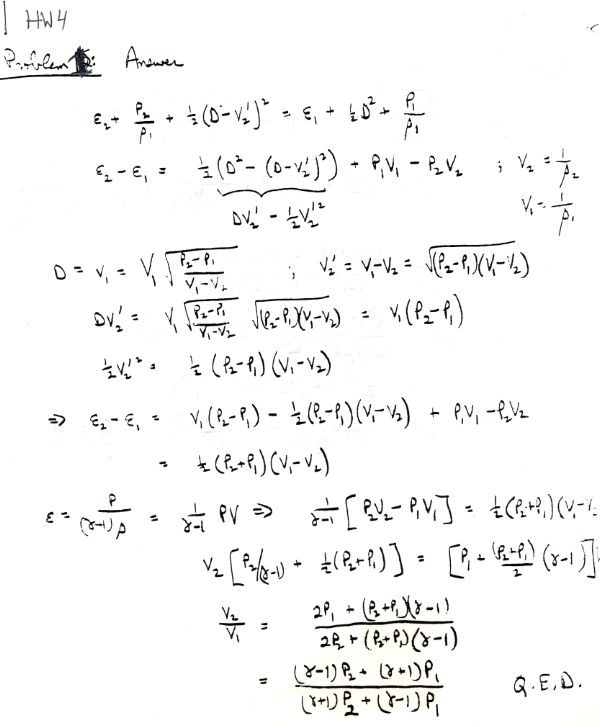 HW4
Problem 2: Answer
ε₂ + P₂/ρ₁ + ½(D-v₂')² = ε₁ + ½D² + P₁/ρ₁
ε₂ - ε₁ = ½(D² - (D-v₂')²) + P₁V₁ - P₂V₂ ; V₂ = 1/ρ₂
Dv₂' - ½v₂'² V₁ = 1/ρ₁
D = v₁ = V₁ √((P₂-P₁)/(V₁-V₂)) ; v₂' = v₁-v₂ = √((P₂-P₁)(V₁-V₂))
Dv₂' = V₁ √((P₂-P₁)/(V₁-V₂)) √((P₂-P₁)(V₁-V₂)) = V₁(P₂-P₁)
½v₂'² = ½(P₂-P₁)(V₁-V₂)
⇒ ε₂ - ε₁ = V₁(P₂-P₁) - ½(P₂-P₁)(V₁-V₂) + P₁V₁ - P₂V₂
= ½(P₂+P₁)(V₁-V₂)
ε = P/((γ-1)ρ) = 1/(γ-1) PV ⇒ 1/(γ-1) [P₂V₂ - P₁V₁] = ½(P₂+P₁)(V₁-
V₂[P₂/(γ-1) + ½(P₂+P₁)] = [P₁ + (P₂+P₁)/2 (γ-1)]
V₂/V₁ = (2P₁ + (P₂+P₁)(γ-1))/(2P₂ + (P₂+P₁)(γ-1))
= ((γ-1)P₂ + (γ+1)P₁)/((γ+1)P₂ + (γ-1)P₁) Q.E.D.